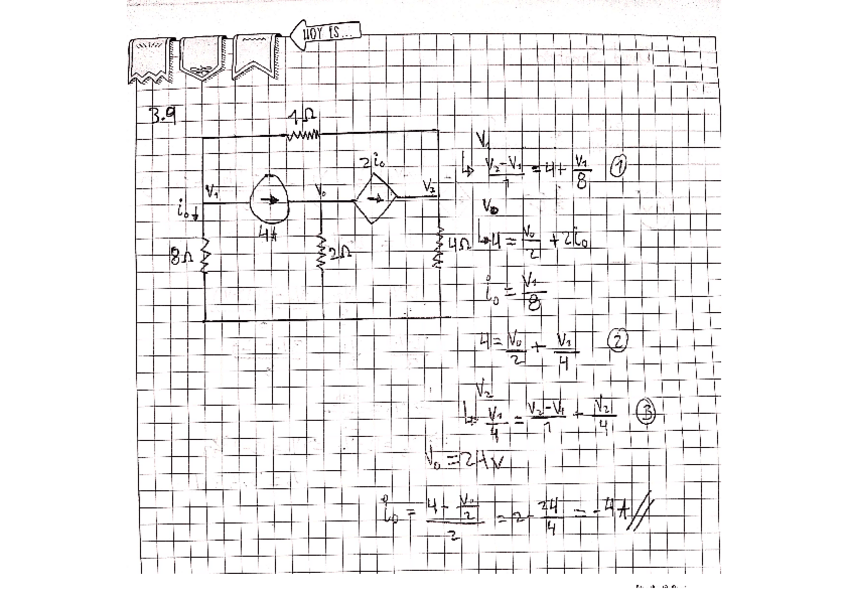 HOY ES...
3.9
1Ω
2i₀
V₁
V₀
V₂
i₀ ↓
4A
8Ω
2Ω
4Ω
V₁
↳ (V₂-V₁)/1 = 4 + V₁/8 ①
V₀
↳ 4 = V₀/2 + 2i₀
i₀ = V₁/8
4 = V₀/2 + V₁/4 ②
V₂
↳ V₁/4 = (V₂-V₁)/1 + V₂/4 ③
V₀ = 24V
i₀ = (4 - V₀/2)/2 = 2 - 24/4 = -4A //